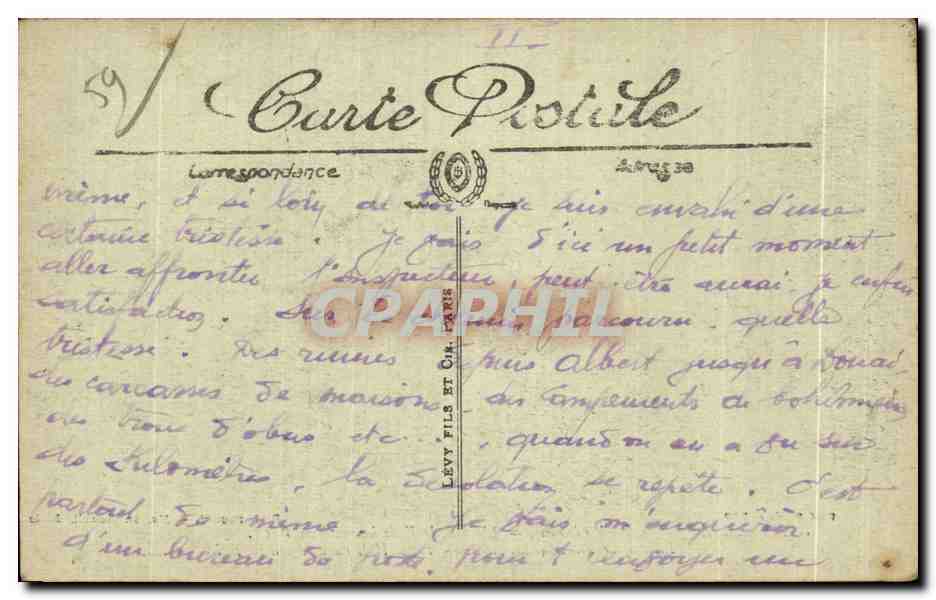 II
59
Carte Postale
Correspondance
Adresse
même, et si loin de toi je suis envahi d'une
certaine tristesse. Je vais d'ici un petit moment
aller affronter l'Inspecteur peut être aurai je enfin
satisfaction. Sur le parcouru quelle
tristesse. Des ruines depuis Albert jusqu'à Douai,
des carcasses de maisons, des campements de bohémiens
des trous d'obus etc..., quand on en a vu sur
des kilomètres, la désolation se repète. C'est
partout de même. Je vais m'enquérir
d'un bureau de poste pour t'envoyer un
LÉVY FILS ET CIE. PARIS
CPAPHIL